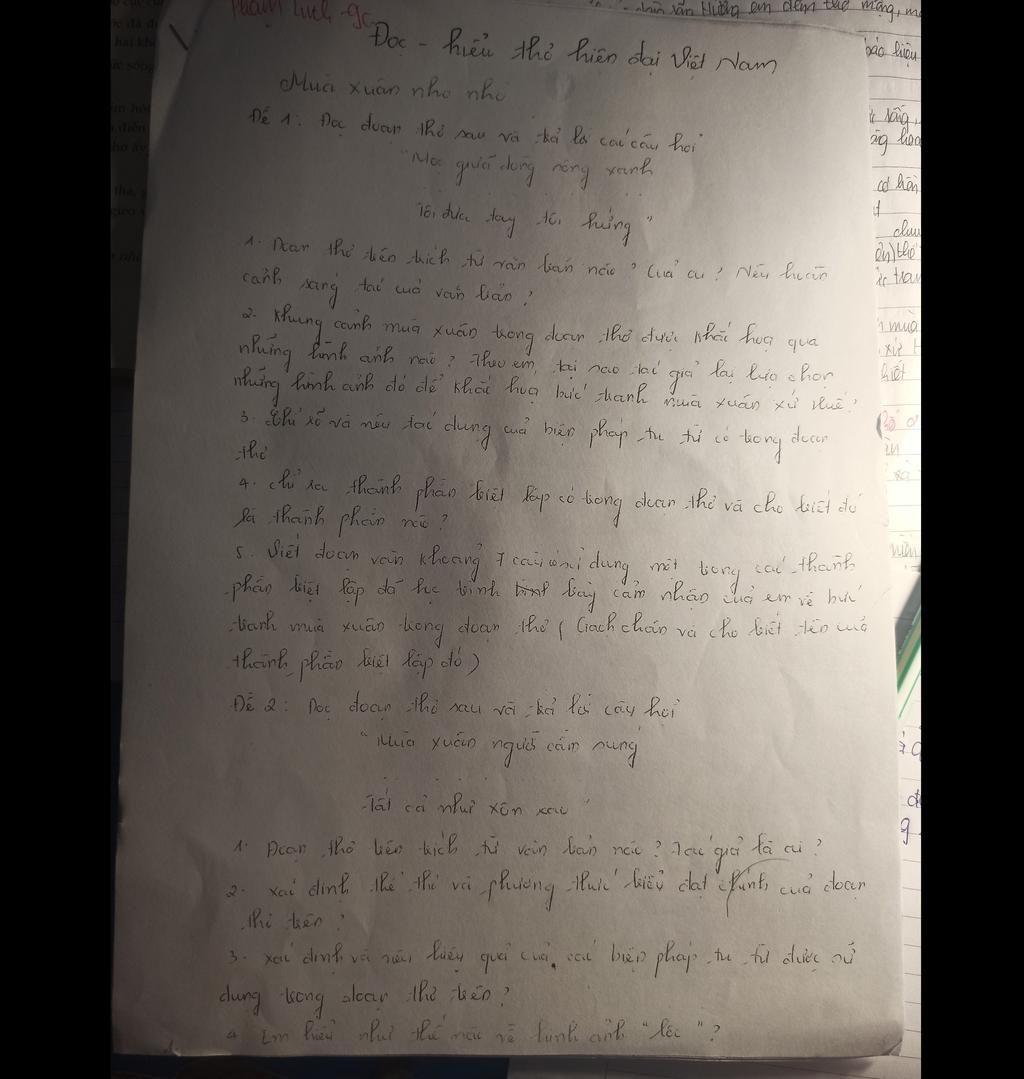 Phạm Linh - 9c
Đọc - hiểu thơ hiện đại Việt Nam
Mùa xuân nho nhỏ
Đề 1: Đọc đoạn thơ sau và trả lời các câu hỏi
"Mọc giữa dòng sông xanh
. . . . .
Tôi đưa tay tôi hứng"
1. Đoạn thơ trên trích từ văn bản nào? Của ai? Nêu hoàn
cảnh sáng tác của văn bản?
2. Khung cảnh mùa xuân trong đoạn thơ được khắc hoạ qua
những hình ảnh nào? Theo em, tại sao tác giả lại lựa chọn
những hình ảnh đó để khắc hoạ bức tranh mùa xuân xứ Huế?
3. Chỉ rõ và nêu tác dụng của biện pháp tu từ có trong đoạn
thơ
4. chỉ ra thành phần biệt lập có trong đoạn thơ và cho biết đó
là thành phần nào?
5. Viết đoạn văn khoảng 7 câu có sử dụng một trong các thành
phần biệt lập đã học trình bày cảm nhận của em về bức
tranh mùa xuân trong đoạn thơ (Gạch chân và cho biết tên của
thành phần biệt lập đó)
Đề 2: Đọc đoạn thơ sau và trả lời câu hỏi
"Mùa xuân người cầm súng
. . . . .
Tất cả như xôn xao"
1. Đoạn thơ trên trích từ văn bản nào? Tác giả là ai?
2. xác định thể thơ và phương thức biểu đạt chính của đoạn
thơ trên?
3. xác định và nêu hiệu quả của các biện pháp tu từ được sử
dụng trong đoạn thơ trên?
4. Em hiểu như thế nào về hình ảnh "lộc"?